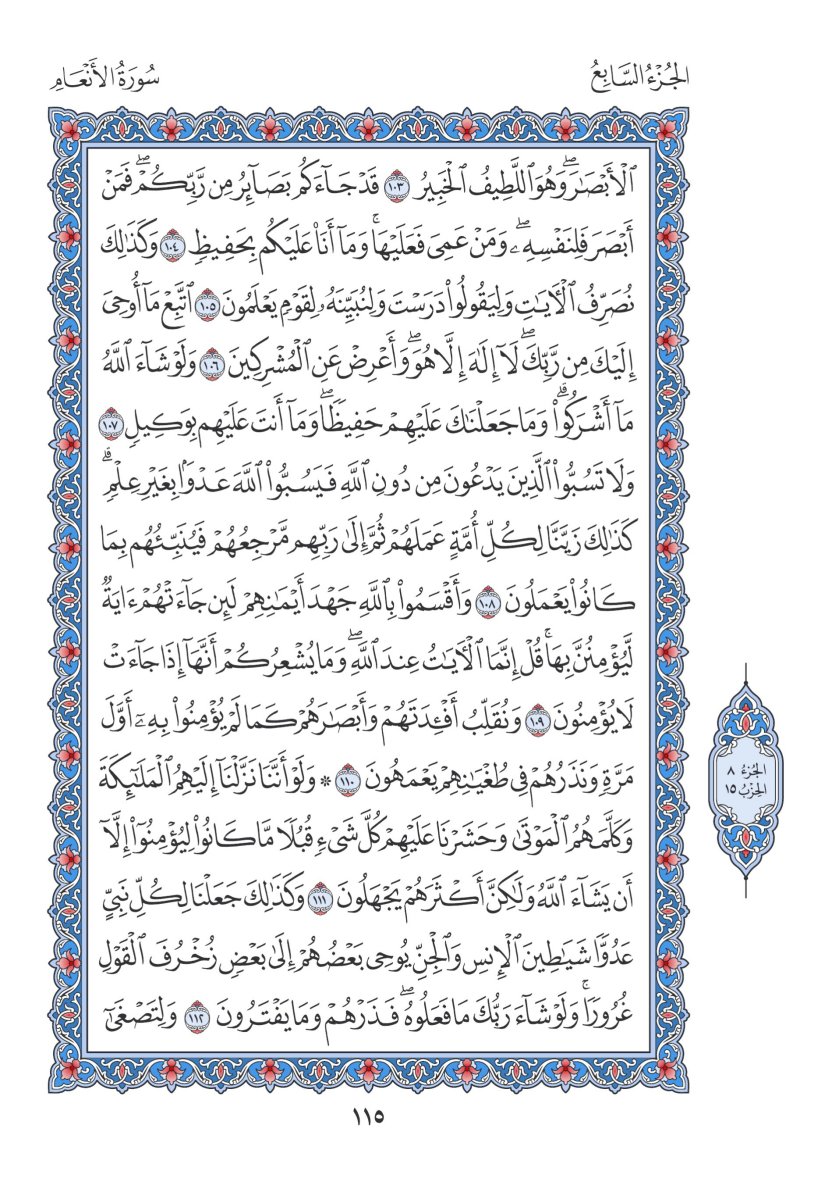 الجُزْءُ السَّابِعُ
سُورَةُ الأَنْعَامِ
ٱلْأَبْصَٰرَۖ وَهُوَ ٱللَّطِيفُ ٱلْخَبِيرُ ١٠٣ قَدْ جَآءَكُم بَصَآئِرُ مِن رَّبِّكُمْۖ فَمَنْ
أَبْصَرَ فَلِنَفْسِهِۦۖ وَمَنْ عَمِىَ فَعَلَيْهَاۚ وَمَآ أَنَا۠ عَلَيْكُم بِحَفِيظٍ ١٠٤ وَكَذَٰلِكَ
نُصَرِّفُ ٱلْأَيَٰتِ وَلِيَقُولُوا۟ دَرَسْتَ وَلِنُبَيِّنَهُۥ لِقَوْمٍ يَعْلَمُونَ ١٠٥ ٱتَّبِعْ مَآ أُوحِىَ
إِلَيْكَ مِن رَّبِّكَۖ لَآ إِلَٰهَ إِلَّا هُوَۖ وَأَعْرِضْ عَنِ ٱلْمُشْرِكِينَ ١٠٦ وَلَوْ شَآءَ ٱللَّهُ
مَآ أَشْرَكُوا۟ۗ وَمَا جَعَلْنَٰكَ عَلَيْهِمْ حَفِيظًاۖ وَمَآ أَنتَ عَلَيْهِم بِوَكِيلٍ ١٠٧
وَلَا تَسُبُّوا۟ ٱلَّذِينَ يَدْعُونَ مِن دُونِ ٱللَّهِ فَيَسُبُّوا۟ ٱللَّهَ عَدْوًۢا بِغَيْرِ عِلْمٍۗ
كَذَٰلِكَ زَيَّنَّا لِكُلِّ أُمَّةٍ عَمَلَهُمْ ثُمَّ إِلَىٰ رَبِّهِم مَّرْجِعُهُمْ فَيُنَبِّئُهُم بِمَا
كَانُوا۟ يَعْمَلُونَ ١٠٨ وَأَقْسَمُوا۟ بِٱللَّهِ جَهْدَ أَيْمَٰنِهِمْ لَئِن جَآءَتْهُمْ ءَايَةٌ
لَّيُؤْمِنُنَّ بِهَاۚ قُلْ إِنَّمَا ٱلْأَيَٰتُ عِندَ ٱللَّهِۖ وَمَا يُشْعِرُكُمْ أَنَّهَآ إِذَا جَآءَتْ
لَا يُؤْمِنُونَ ١٠٩ وَنُقَلِّبُ أَفْـِٔدَتَهُمْ وَأَبْصَٰرَهُمْ كَمَا لَمْ يُؤْمِنُوا۟ بِهِۦٓ أَوَّلَ
مَرَّةٍ وَنَذَرُهُمْ فِى طُغْيَٰنِهِمْ يَعْمَهُونَ ١١٠ * وَلَوْ أَنَّنَا نَزَّلْنَآ إِلَيْهِمُ ٱلْمَلَٰٓئِكَةَ
وَكَلَّمَهُمُ ٱلْمَوْتَىٰ وَحَشَرْنَا عَلَيْهِمْ كُلَّ شَىْءٍ قُبُلًا مَّا كَانُوا۟ لِيُؤْمِنُوٓا۟ إِلَّآ
أَن يَشَآءَ ٱللَّهُ وَلَٰكِنَّ أَكْثَرَهُمْ يَجْهَلُونَ ١١١ وَكَذَٰلِكَ جَعَلْنَا لِكُلِّ نَبِىٍّ
عَدُوًّا شَيَٰطِينَ ٱلْإِنسِ وَٱلْجِنِّ يُوحِى بَعْضُهُمْ إِلَىٰ بَعْضٍ زُخْرُفَ ٱلْقَوْلِ
غُرُورًاۚ وَلَوْ شَآءَ رَبُّكَ مَا فَعَلُوهُۖ فَذَرْهُمْ وَمَا يَفْتَرُونَ ١١٢ وَلِتَصْغَىٰٓ
الجُزْءُ ٨
الحِزْبُ ١٥
١١٥